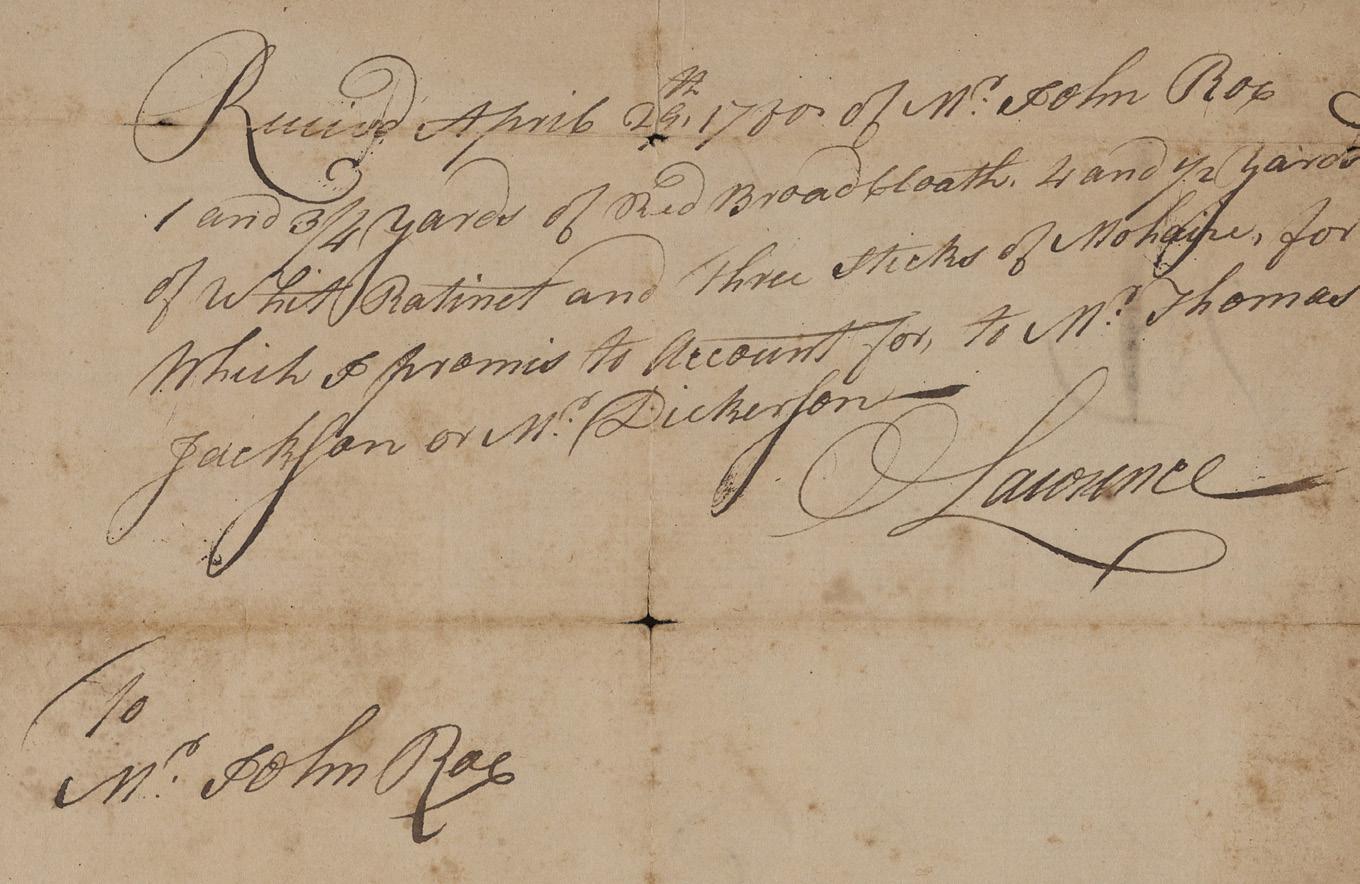 Received April 29th, 1780. of Mr. John Rox
1 and 3/4 yards of Red Broadcloath. 4 and 1/2 yards
of Whitt Ratinet and three sticks of Mohaire, for
Which I promis to Account for, to Mr. Thomas
Jackson or Mr. Dickerson
Lawrence
To
Mr. John Rox